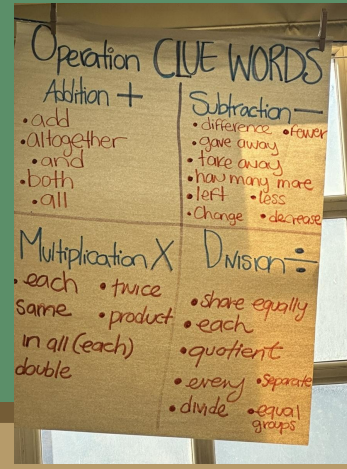 Operation CLUE WORDS
Addition +
• add
• altogether
• and
• both
• all
Subtraction —
• difference • fewer
• gave away
• take away
• how many more
• left • less
• Change • decrease
Multiplication X
• each • twice
same • product
in all (each)
double
Division ÷
• share equally
• each
• quotient
• every • Separate
• divide • equal
groups